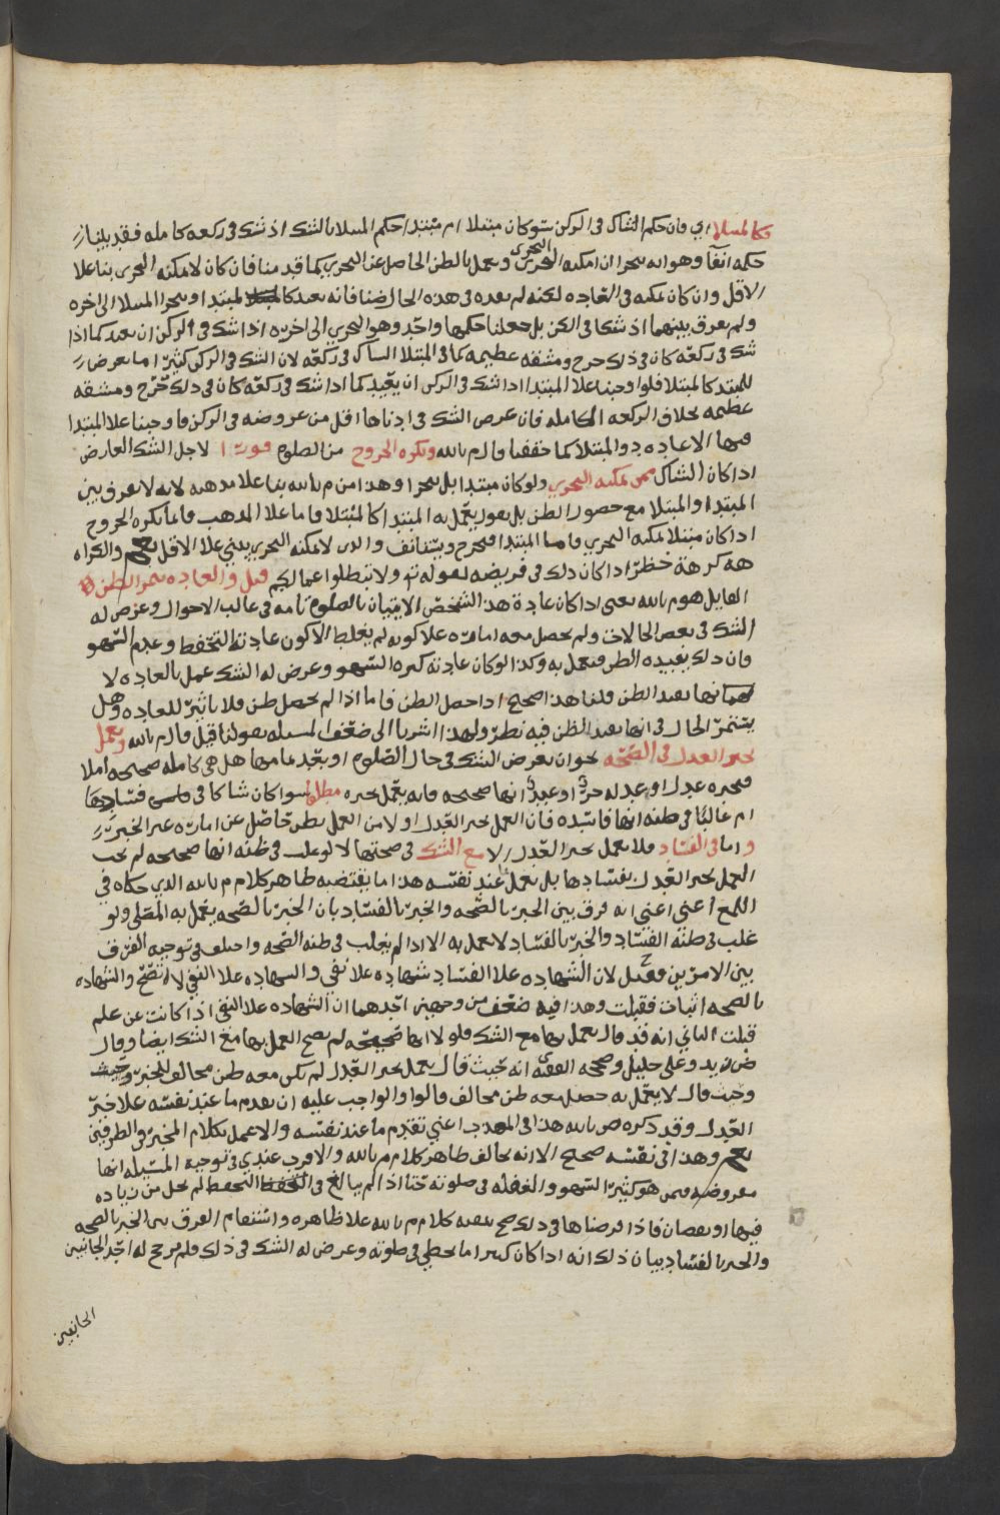 فكالمبتلا اي فان حكم الشاك في الركن سوكان مبتلا ام مبتدا حكم المبتلا بالشك اذ شك في ركعه كامله فقد بينا
حكمه انفا وهو انه يتحرا ان امكنه التحري ويعمل بالظن الحاصل عن التحري كما قدمنا فان كان لا يمكنه التحري بنا علا
الاقل وان كان يمكنه في العاده لكنه لم يفده في هذه الحال ضنا فانه يعيد كالمبتدا ويتحرا المبتلا الى اخره
ولم يفرق بينهما اذ شكا في الركن بل جعلنا حكمهما واحد وهو التحري الى اخره اذا شك في الركن ان يعيد كما اذا
شك في ركعه كان في ذلك حرج ومشقه عظيمه كما في المبتلا الشاك في ركعه لان الشك في الركن كثيرا ما يعرض
للمبتدا كالمبتلا فلو اوجبنا علا المبتدا اذا شك في الركن ان يعيد كما اذا شك في ركعه كان في ذلك حرج ومشقه
عظيمه بخلاف الركعه الكامله فان عرض الشك في اذناها اقل من عروضه في الركن فاوجبنا علا المبتدا
فيها الاعاده دون المبتلا كما حققنا قال م بالله ويكره الخروج من الصلوه فورا لاجل الشك العارض
اذا كان الشاك ممن يمكنه التحري ولو كان مبتدا بل يتحرا وهذا من م بالله بنا علا مذهبه لانه لا يفرق بين
المبتدا والمبتلا مع حصور الظن بل يقول يعمل به المبتدا كالمبتلا فاما علا المذهب فانما يكره الخروج
اذا كان مبتلا يمكنه التحري واما المبتدا فيخرج ويستانف والذي لا يمكنه التحري يبني علا الاقل نعم والكراه
هه كرهة خظر اذا كان ذلك في فريضه لقوله تع ولا تبطلوا اعمالكم قيل والعاده تثمر الظن
القايل هو م بالله يعني اذا كان عادة هذا الشخص الاتيان بالصلوه تامه في غالب الاحوال وعرض له
الشك في بعض الحالات ولم يحصل معه اماره علا كونه لم يغلط الا كون عادته التحفظ وعدم السهو
فان ذلك يفيده الظن فيعمل به وكذا لو كان عادته كثره السهو وعرض له الشك عمل بالعاده لا
نها تفيد الظن قلنا هذا صحيح اذا حصل الظن فاما اذا لم يحصل ظن فلا تاثير للعاده وهل
يستمر الحال في انها تفيد الظن فيه نظر ولهذا اشرنا الى ضعف المسله بقولنا قيل قال م بالله ويعمل
بخبر العدل في الصحه نحو ان يعرض الشك في حال الصلوه او بعد تمامها هل هي كامله صحيحه ام لا
فيخبره عدل او عدله حر او عبد انها صحيحه فانه يعمل بخبره مطلقا سوا كان شاكا في فسادها
ام غالبا في ظنه انها فاسده فان العمل بخبر العدل اولا من العمل بظن حاصل عن اماره غير الخبر
واما في الفساد فلا يعمل بخبر العدل الا مع الشك في صحتها لا لو غلب في ظنه انها صحيحه لم يجب
العمل بخبر العدل بفسادها بل يعمل بما عند نفسه هذا ما يقتضيه ظاهر كلام م بالله الذي حكاه في
اللمع اعني انه فرق بين الخبر بالصحه والخبر بالفساد بان الخبر بالصحه يعمل به المصلي ولو
غلب في ظنه الفساد والخبر بالفساد لا يعمل به الا اذا لم يغلب في ظنه الصحه واختلف في توجيه الفرق
بين الامرين فقيل لان الشهاده علا الفساد شهاده علا نفي والشهاده علا النفي لا تصح والشهاده
بالصحه اثبات فقبلت وهذا فيه ضعف من وجهين احدهما ان الشهاده علا النفي اذا كانت عن علم
قبلت الثاني انه قد قال يعمل بها مع الشك فلولا انها صحيحه لم يصح العمل بها مع الشك ايضا وقال
ض زيد وعلي خليل وصححه الفقيه ى انه حيث قال يعمل بخبر العدل لم يكن معه ظن مخالف للخبر
وحيث قال لا يعمل به حصل معه ظن مخالف قالوا والواجب عليه ان يقدم ما عند نفسه علا خبر
العدل وقد ذكره ض بالله هذا في المهذب اعني تقدم ما عند نفسه والا عمل بكلام المخبر والطرفين
نعم وهذا في نفسه صحيح الا انه يخالف ظاهر كلام م بالله والاقرب عندي في توجيه المسئله انها
مفروضه فيمن هو كثير السهو والغفله في صلوته حتا اذا لم يبالغ في التحفظ لم يخل من زياده
فيها او نقصان فاذا فرضناها في ذلك صح بقيه كلام م بالله علا ظاهره واستقام الفرق بين الخبر بالصحه
والخبر بالفساد بيان ذلك انه اذا كان كثيرا ما يخطي في صلوته وعرض له الشك في ذلك فلم يرجح له احد الجانبين
الجانبين